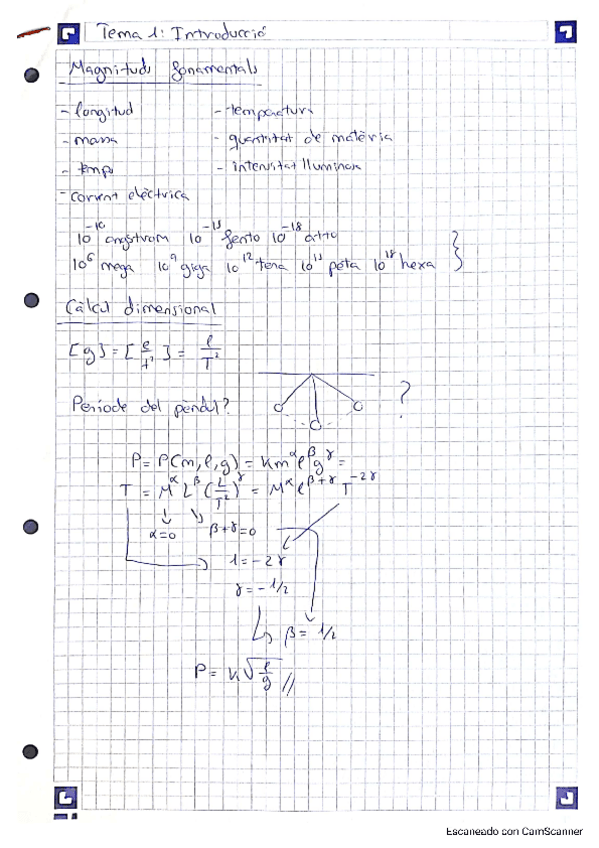 Tema 1: Introducció
Magnituds fonamentals
- longitud
- massa
- temps
- corrent elèctrica
- temperatura
- quantitat de matèria
- intensitat lluminosa
10^-10 angstrom 10^-15 femto 10^-18 atto
10^6 mega 10^9 giga 10^12 tera 10^15 peta 10^18 hexa }
Càlcul dimensional
[g] = [ℓ/t²] = ℓ/T²
Període del pèndul? ?
P = P(m, ℓ, g) = K m^α ℓ^β g^γ =
T = M^α L^β (L/T²)^γ = M^α ℓ^β+γ T^-2γ
α=0 β+γ=0
1 = -2γ
γ = -1/2
β = 1/2
P = K√(ℓ/g) //
Escaneado con CamScanner